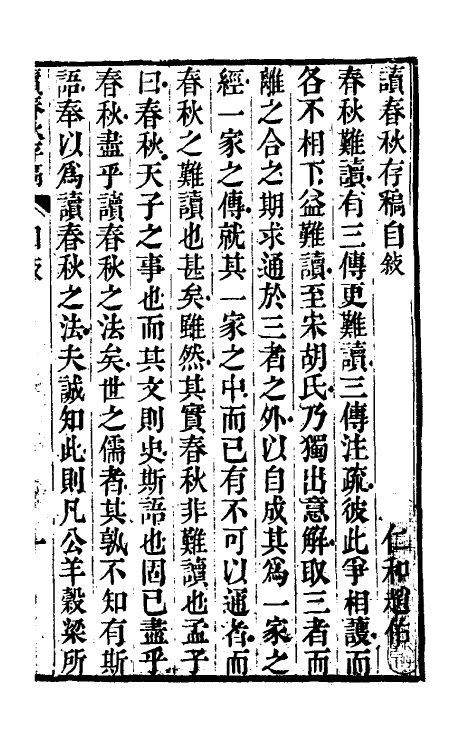 讀春秋存稿自敍
仁和趙佑
春秋難讀有三傳更難讀三傳注疏彼此爭相護而
各不相下益難讀至宋胡氏乃獨出意解取三者而
離之合之期求通於三者之外以自成其爲一家之
經一家之傳就其一家之中而已有不可以通者而
春秋之難讀也甚矣雖然其實春秋非難讀也孟子
曰春秋天子之事也而其文則史斯語也固已盡乎
春秋盡乎讀春秋之法矣世之儒者其孰不知有斯
語奉以爲讀春秋之法夫誠知此則凡公羊穀梁所
讀春秋存稿
自敍
一